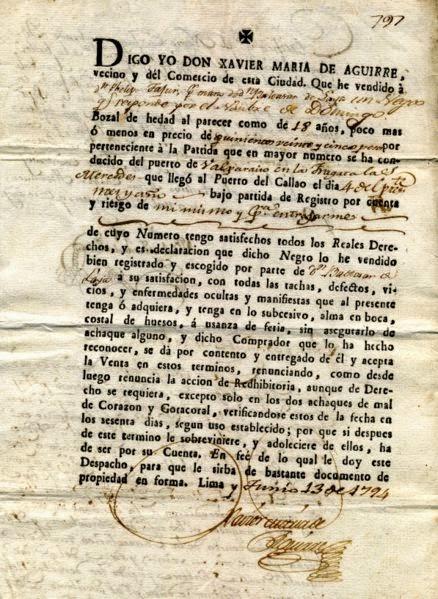 797
DIGO YO DON XAVIER MARIA DE AGUIRRE,
vecino y dél Comercio de esta Ciudad. Que he vendido à
un Negro
q responde por el Nombre de Domingo
Bozal de hedad al parecer como de 18 años, poco mas
ó menos en precio de quinientos veinte y cinco pesos
perteneciente à la Partida que en mayor numero se ha con-
ducido del puerto de Valparaiso en la Fragata las
Mercedes que llegó al Puerto del Callao el dia 4 del
mes y año bajo partida de Registro por cuenta
y riesgo de mi mismo y
de cuyo Numero tengo satisfechos todos los Reales Dere-
chos, y es declaracion que dicho Negro lo he vendido
bien registrado y escogido por parte de Dn
à su satisfacion, con todas las tachas, defectos, vi-
cios, y enfermedades ocultas y manifiestas que al presente
tenga ò adquiera, y tenga en lo subcesivo, alma en boca,
costal de huesos, á usanza de feria, sin asegurarlo de
achaque alguno, y dicho Comprador que lo ha hecho
reconocer, se dà por contento y entregado de él y acepta
la Venta en estos terminos, renunciando, como desde
luego renuncia la accion de Redhibitoria, aunque de Dere-
cho se requiera, excepto solo en los dos achaques de mal
de Corazon y Gotacoral, verificandose estos de la fecha en
los sesenta dias, segun uso establecido; por que si despues
de este termino le sobreviniere, y adoleciere de ellos, ha
de ser por su Cuenta. En feè de lo qual le doy este
Despacho, para que le sirba de bastante documento de
propiedad en forma. Lima y Junio 13 de 1794
Aguirre